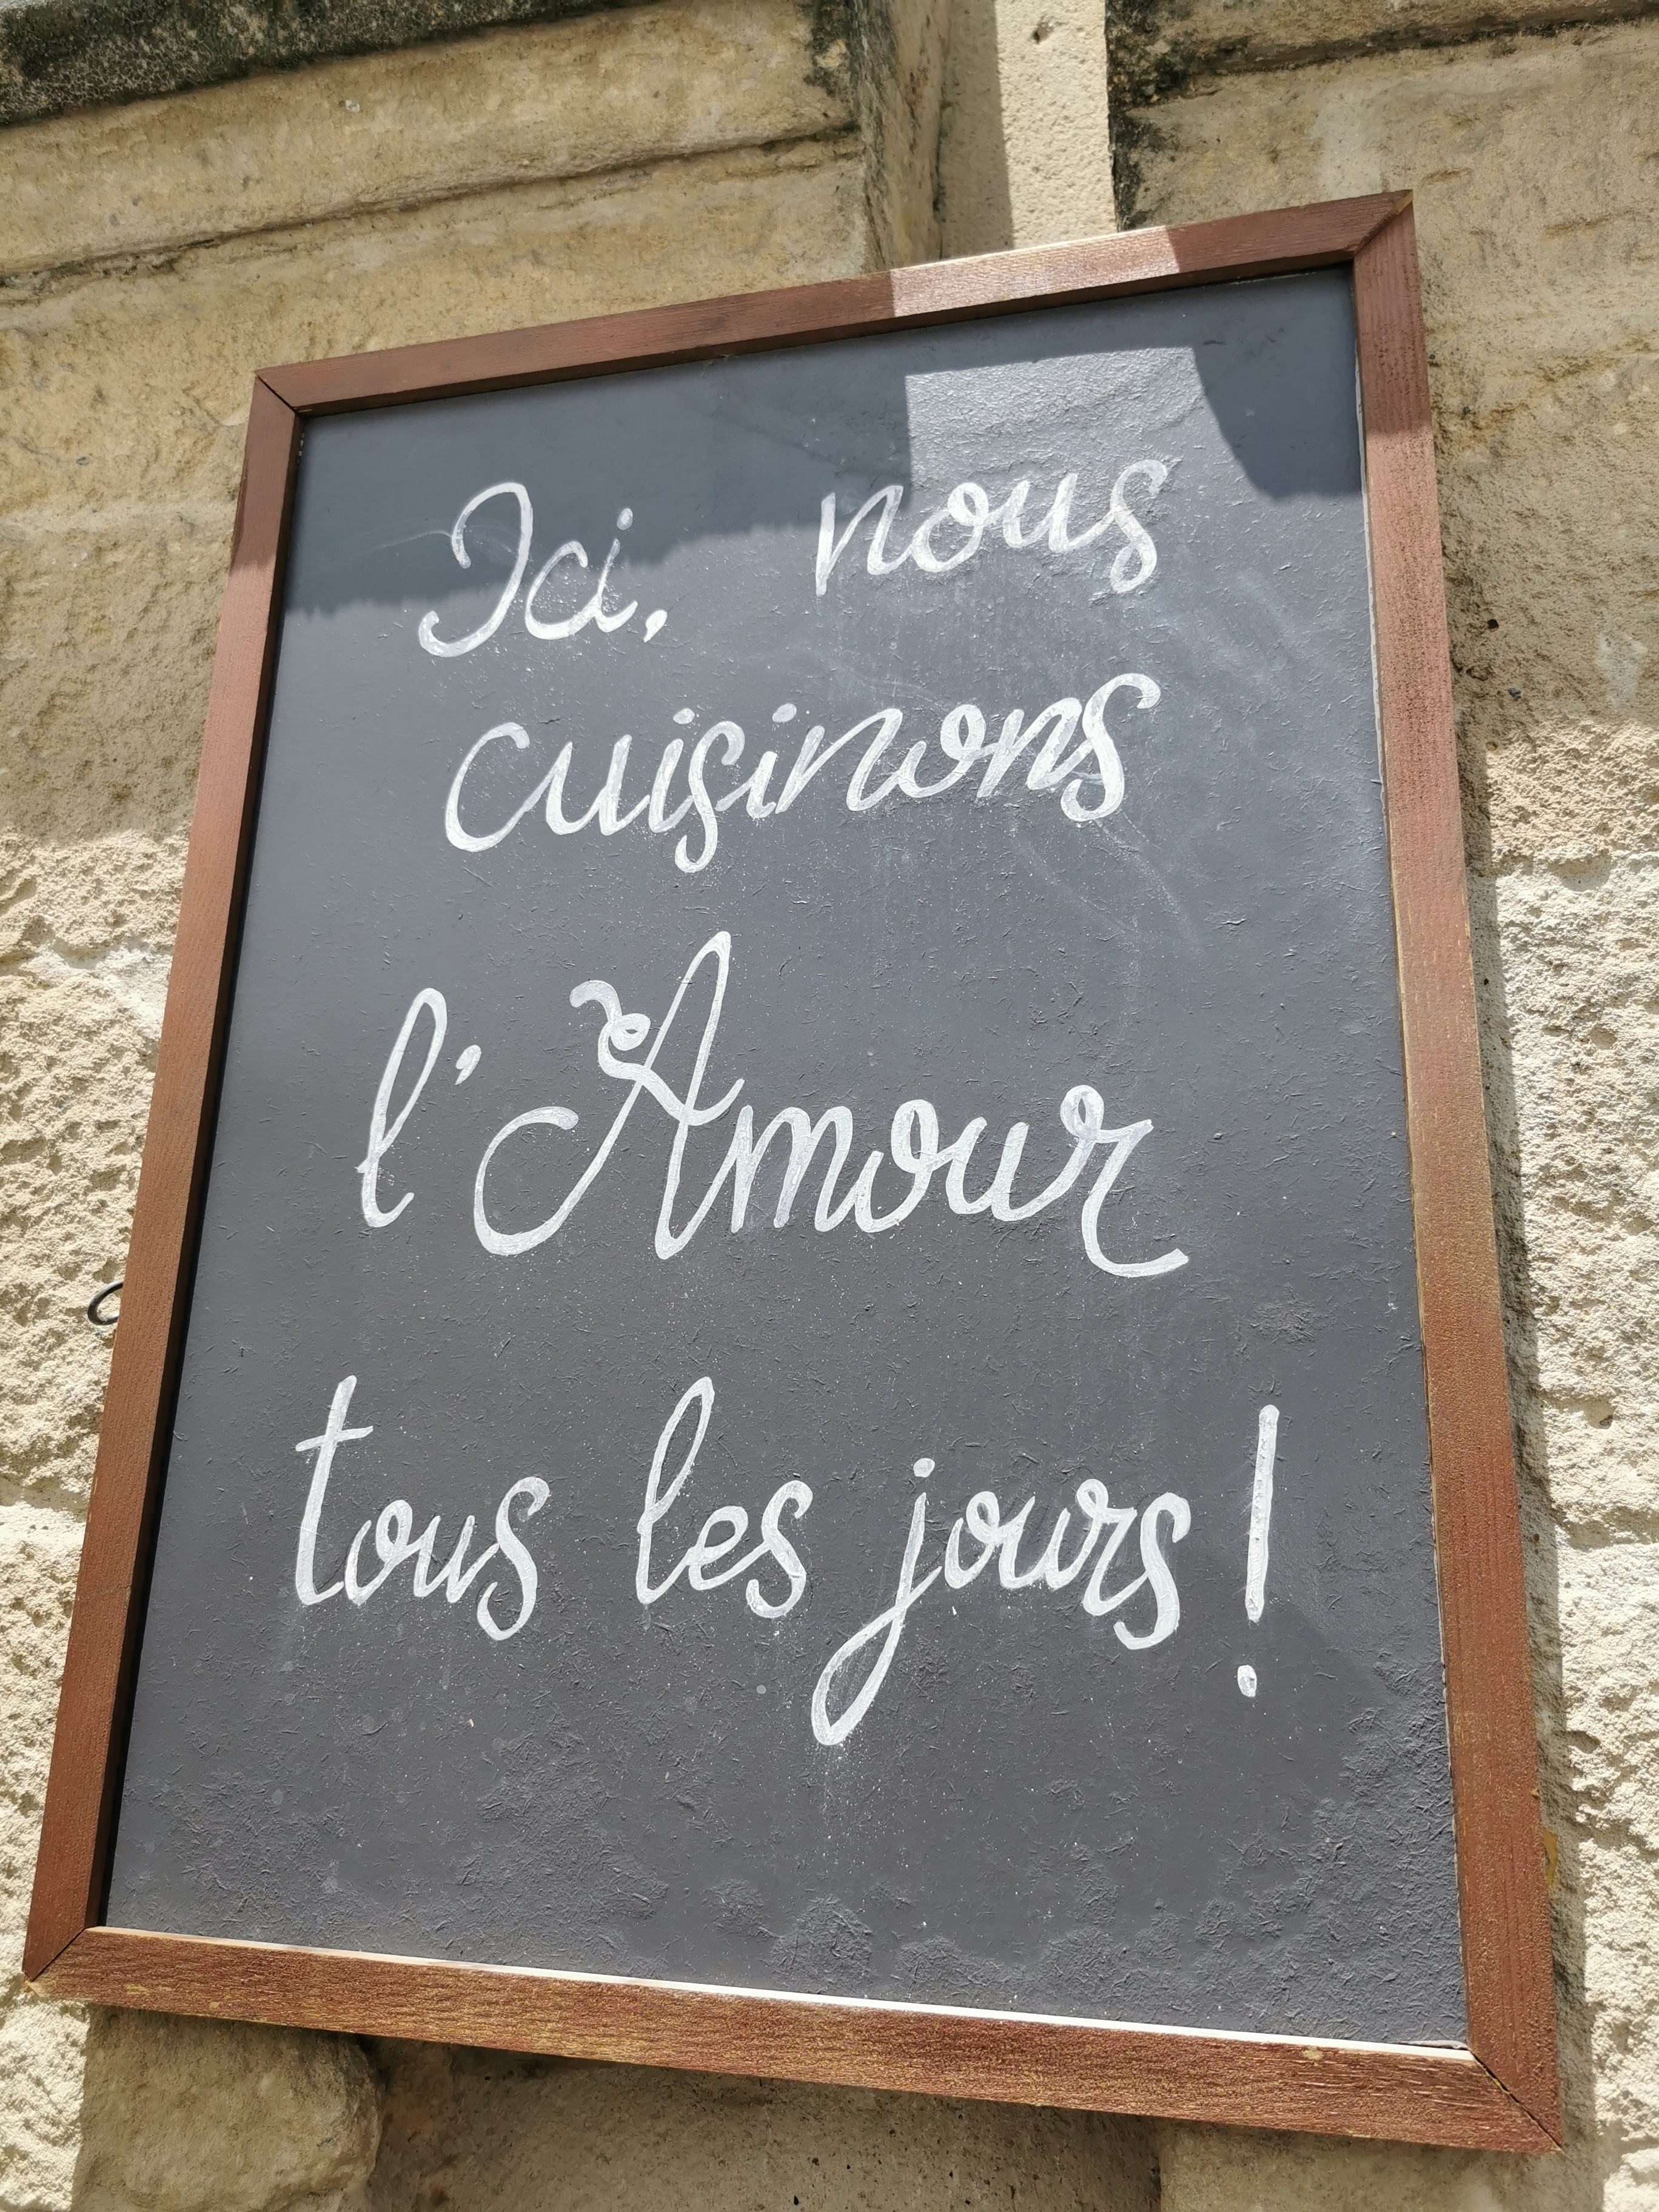 Ici, nous
cuisinons
l'Amour
tous les jours !